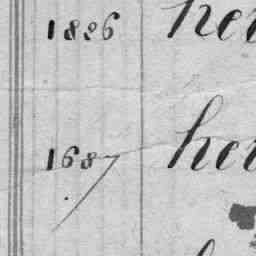 1826 her
1687 her